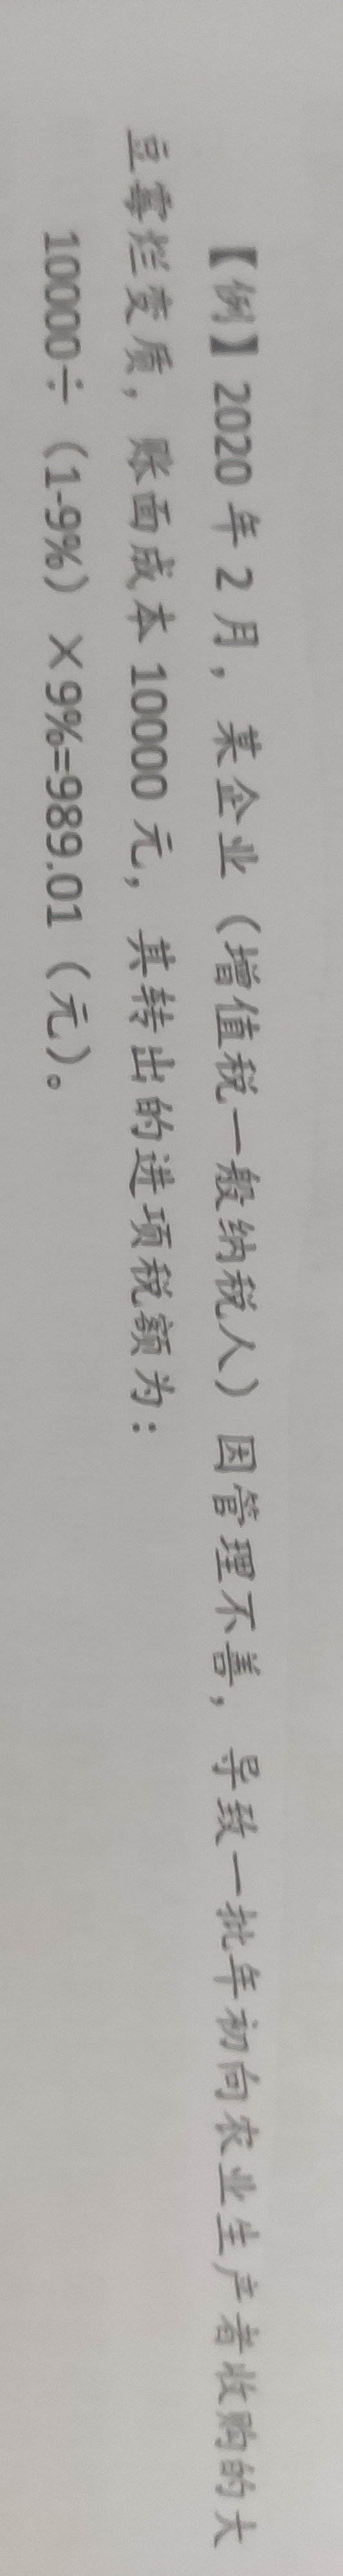 【例】2020 年 2 月，某企业（增值税一般纳税人）因管理不善，导致一批年初向农业生产者收购的大
豆霉烂变质，账面成本 10000 元，其转出的进项税额为：
10000÷（1-9%）×9%=989.01（元）。